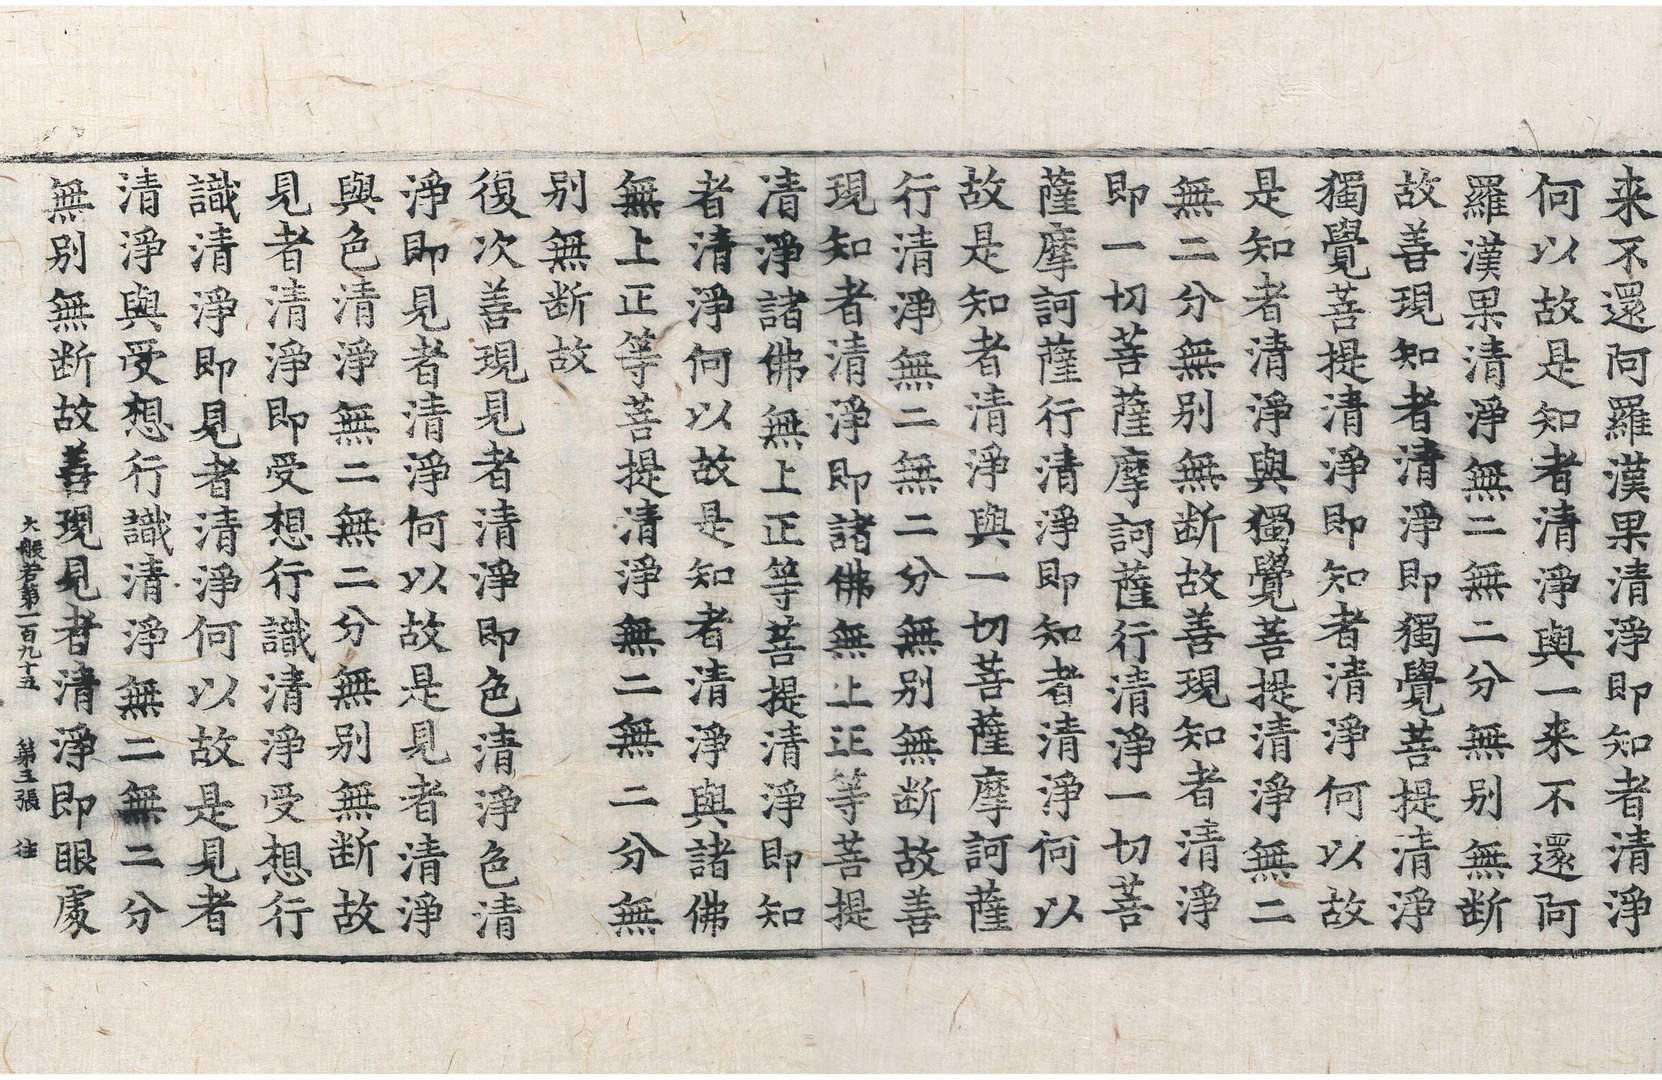 来不還阿羅漢果清淨即知者清淨
何以故是知者清淨與一来不還阿
羅漢果清淨無二無二分無別無断
故善現知者清淨即獨覺菩提清淨
獨覺菩提清淨即知者清淨何以故
是知者清淨與獨覺菩提清淨無二
無二分無別無断故善現知者清淨
即一切菩薩摩訶薩行清淨一切菩
薩摩訶薩行清淨即知者清淨何以
故是知者清淨與一切菩薩摩訶薩
行清淨無二無二分無別無断故善
現知者清淨即諸佛無上正等菩提
清淨諸佛無上正等菩提清淨即知
者清淨何以故是知者清淨與諸佛
無上正等菩提清淨無二無二分無
別無断故
復次善現見者清淨即色清淨色清
淨即見者清淨何以故是見者清淨
與色清淨無二無二分無別無断故
見者清淨即受想行識清淨受想行
識清淨即見者清淨何以故是見者
清淨與受想行識清淨無二無二分
無別無断故善現見者清淨即眼處
大般若第一百九十五 第三張 往